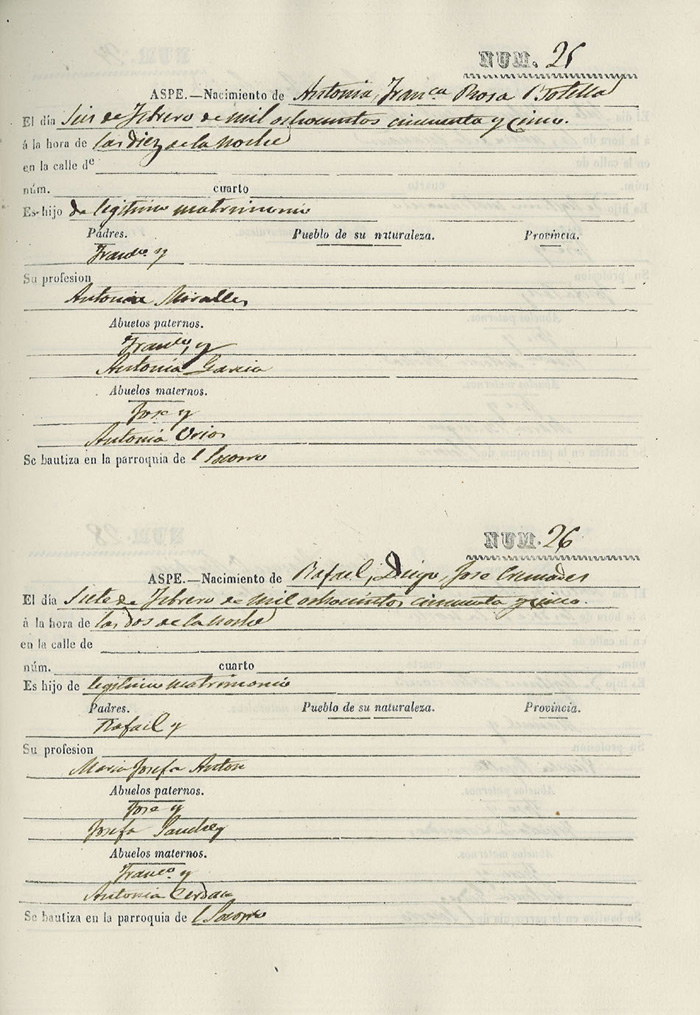 NUM. 25
ASPE.—Nacimiento de Antonia, Franca Rosa Botella
El dia Seis de Febrero de mil ochocientos cincuenta y cinco.
á la hora de las diez de la noche
en la calle de
núm. cuarto
Es hijo de legitimo matrimonio
Padres. Pueblo de su naturaleza. Provincia.
Franco y
Su profesion
Antonia Miralles
Abuelos paternos.
Franco y
Antonia Garcia
Abuelos maternos.
Jose y
Antonia
Se bautiza en la parroquia de l Socorro
NUM. 26
ASPE.—Nacimiento de Rafael, Diego, Jose Cremades
El dia Siete de Febrero de mil ochocientos cincuenta y cinco.
á la hora de las dos de la noche
en la calle de
núm. cuarto
Es hijo de legitimo matrimonio
Padres. Pueblo de su naturaleza. Provincia.
Rafael y
Su profesion
Maria Josefa Anton
Abuelos paternos.
Jose y
Josefa Sanchez
Abuelos maternos.
Franco y
Antonia Cerdan
Se bautiza en la parroquia de l Socorro